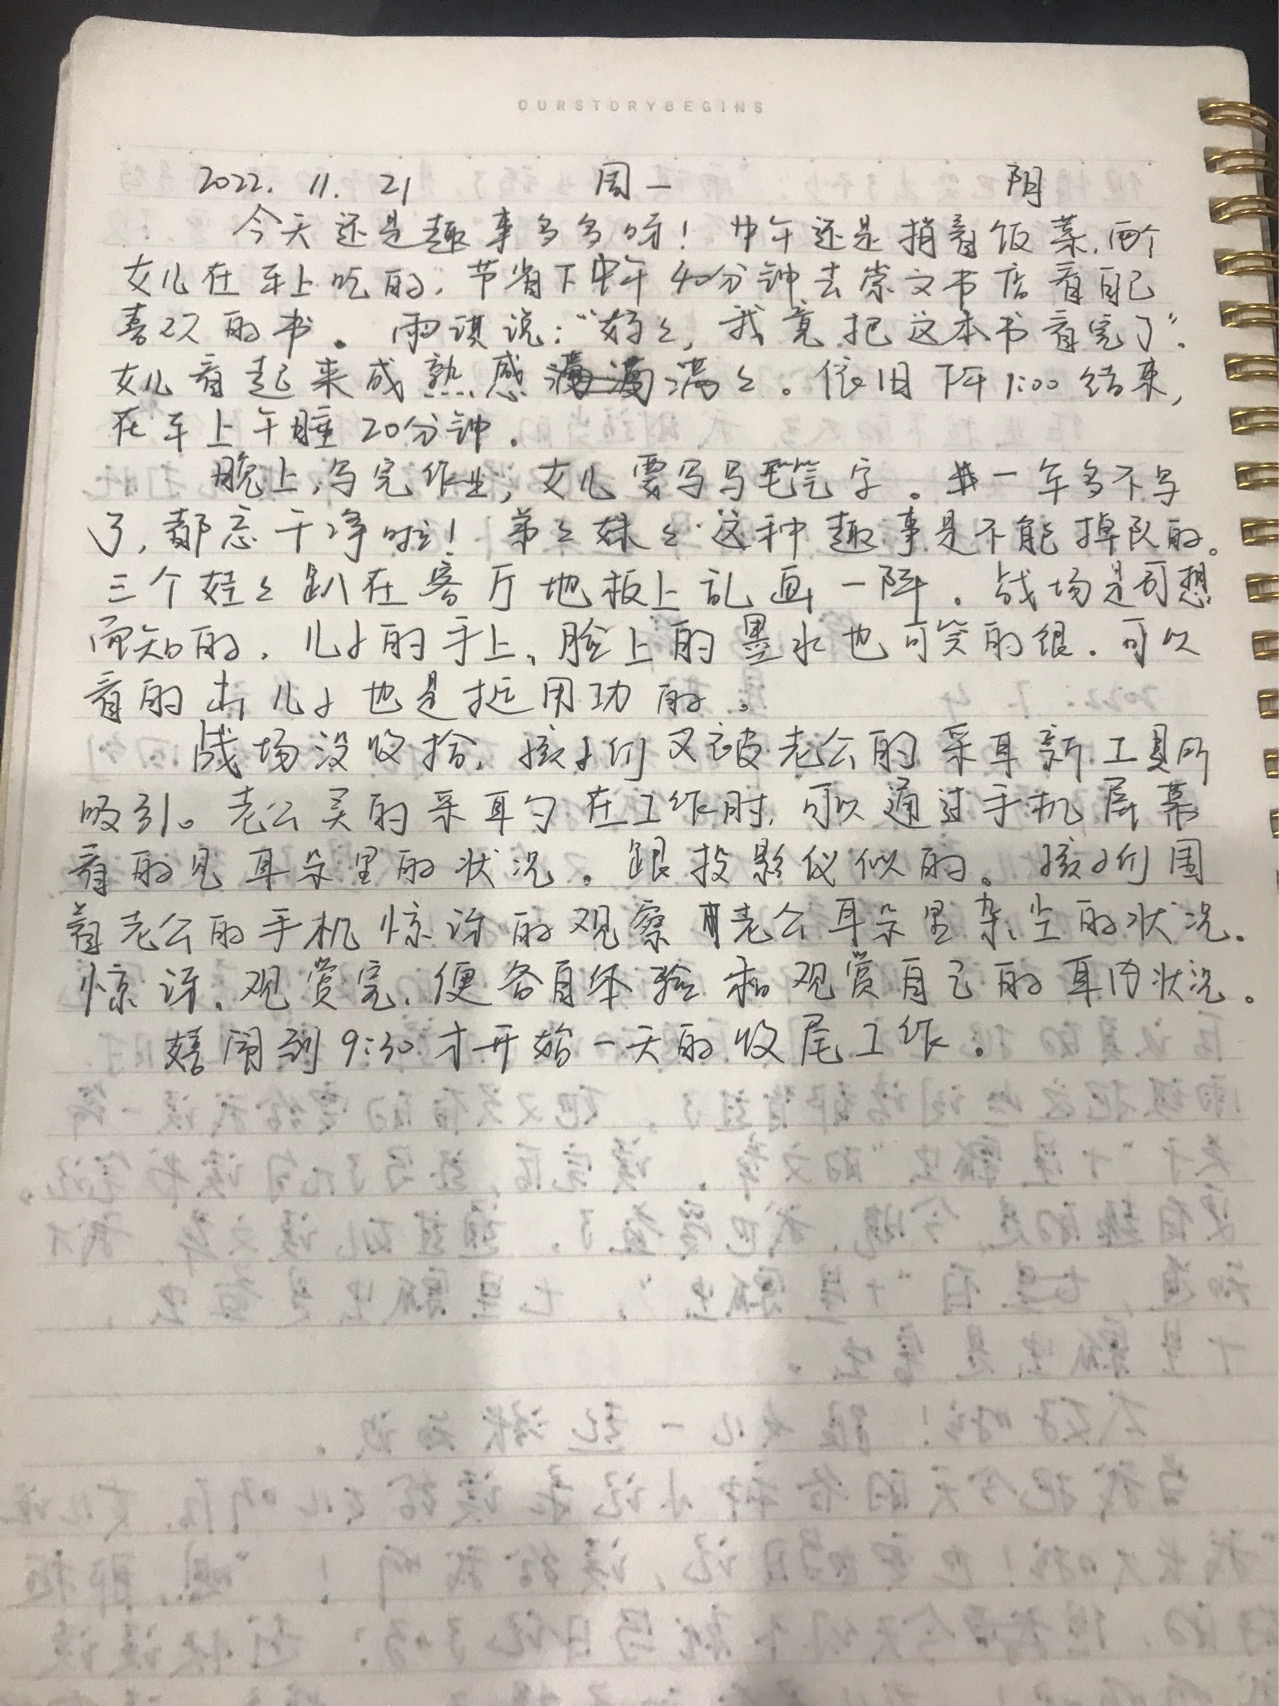 OURSTORYBEGINS
2022. 11. 21 周一 阴
今天还是趣事多多呀！中午还是捎着饭菜，两个
女儿在车上吃的，节省下中午40分钟去崇文书店看自己
喜欢的书。雨琪说：“妈々，我竟把这本书看完了”.
女儿看起来成熟感满々。依旧下午1:00结束，
在车上午睡20分钟.
晚上，写完作业，女儿要写写毛笔字。一年多不写
了，都忘干净啦！弟々妹々这种趣事是不能掉队的。
三个娃々趴在客厅地板上乱画一阵。战场是可想
而知的，儿子的手上、脸上的墨水也可笑的很．可以
看的出儿子也是挺用功的。
战场没收拾，孩子们又被老公的采耳新工具所
吸引。老公买的采耳勺在工作时，可以通过手机屏幕
看的见耳朵里的状况。跟投影仪似的。孩子们围
着老公的手机惊讶的观察老公耳朵里杂尘的状况．
惊讶、观赏完，便各自体验和观赏自己的耳内状况。
嬉闹到9:30才开始一天的收尾工作。